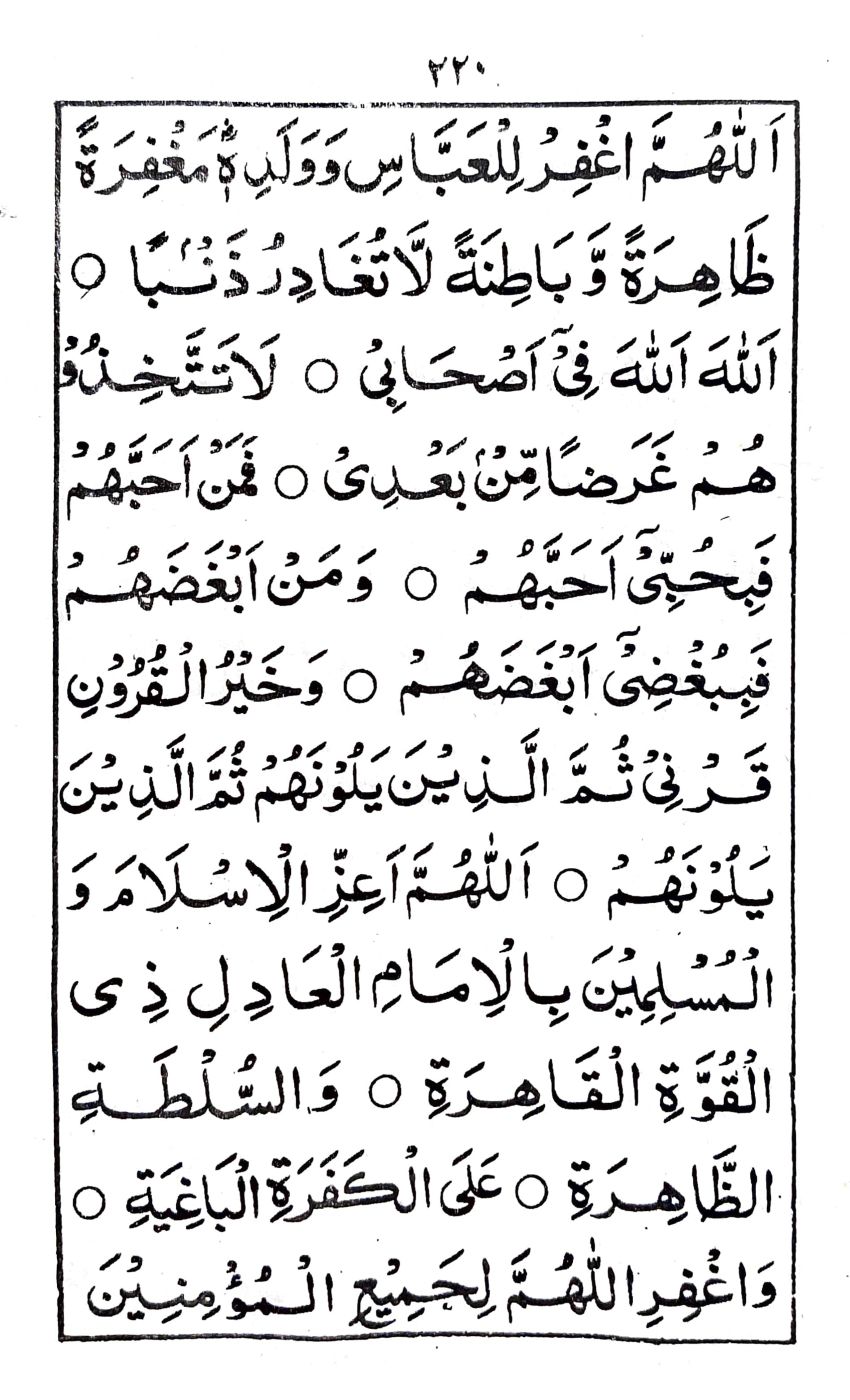 ٢٢٠
اَللّٰهُمَّ اغْفِرْ لِلْعَبَّاسِ وَوَلَدِهٖ مَغْفِرَةً
ظَاهِرَةً وَّ بَاطِنَةً لَّا تُغَادِرُ ذَنْۢبًا ○
اَللهَ اَللهَ فِيْٓ اَصْحَابِيْ ○ لَا تَتَّخِذُوْ
هُمْ غَرَضًا مِّنْۢ بَعْدِيْ ○ فَمَنْ اَحَبَّهُمْ
فَبِحُبِّيْٓ اَحَبَّهُمْ ○ وَ مَنْ اَبْغَضَهُمْ
فَبِبُغْضِيْٓ اَبْغَضَهُمْ ○ وَخَيْرُ الْقُرُوْنِ
قَرْنِيْ ثُمَّ الَّذِيْنَ يَلُوْنَهُمْ ثُمَّ الَّذِيْنَ
يَلُوْنَهُمْ ○ اَللّٰهُمَّ اَعِزِّ الْاِسْلَامَ وَ
الْمُسْلِمِيْنَ بِالْاِمَامِ الْعَادِلِ ذِى
الْقُوَّةِ الْقَاهِرَةِ ○ وَالسُّلْطَةِ
الظَّاهِرَةِ ○ عَلَى الْكَفَرَةِ الْبَاغِيَةِ ○
وَاغْفِرِ اللّٰهُمَّ لِجَمِيْعِ الْمُؤْمِنِيْنَ